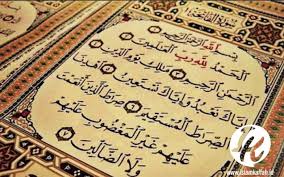 سُورَةُ الفَاتِحَةِ
بِسْمِ ٱللَّهِ ٱلرَّحْمَٰنِ ٱلرَّحِيمِ ١
ٱلْحَمْدُ لِلَّهِ رَبِّ ٱلْعَٰلَمِينَ ٢
ٱلرَّحْمَٰنِ ٱلرَّحِيمِ ٣ مَٰلِكِ يَوْمِ ٱلدِّينِ ٤
إِيَّاكَ نَعْبُدُ وَإِيَّاكَ نَسْتَعِينُ ٥ ٱهْدِنَا
ٱلصِّرَٰطَ ٱلْمُسْتَقِيمَ ٦ صِرَٰطَ ٱلَّذِينَ أَنْعَمْتَ
عَلَيْهِمْ غَيْرِ ٱلْمَغْضُوبِ عَلَيْهِمْ
وَلَا ٱلضَّآلِّينَ ٧
www.islamkaffah.id